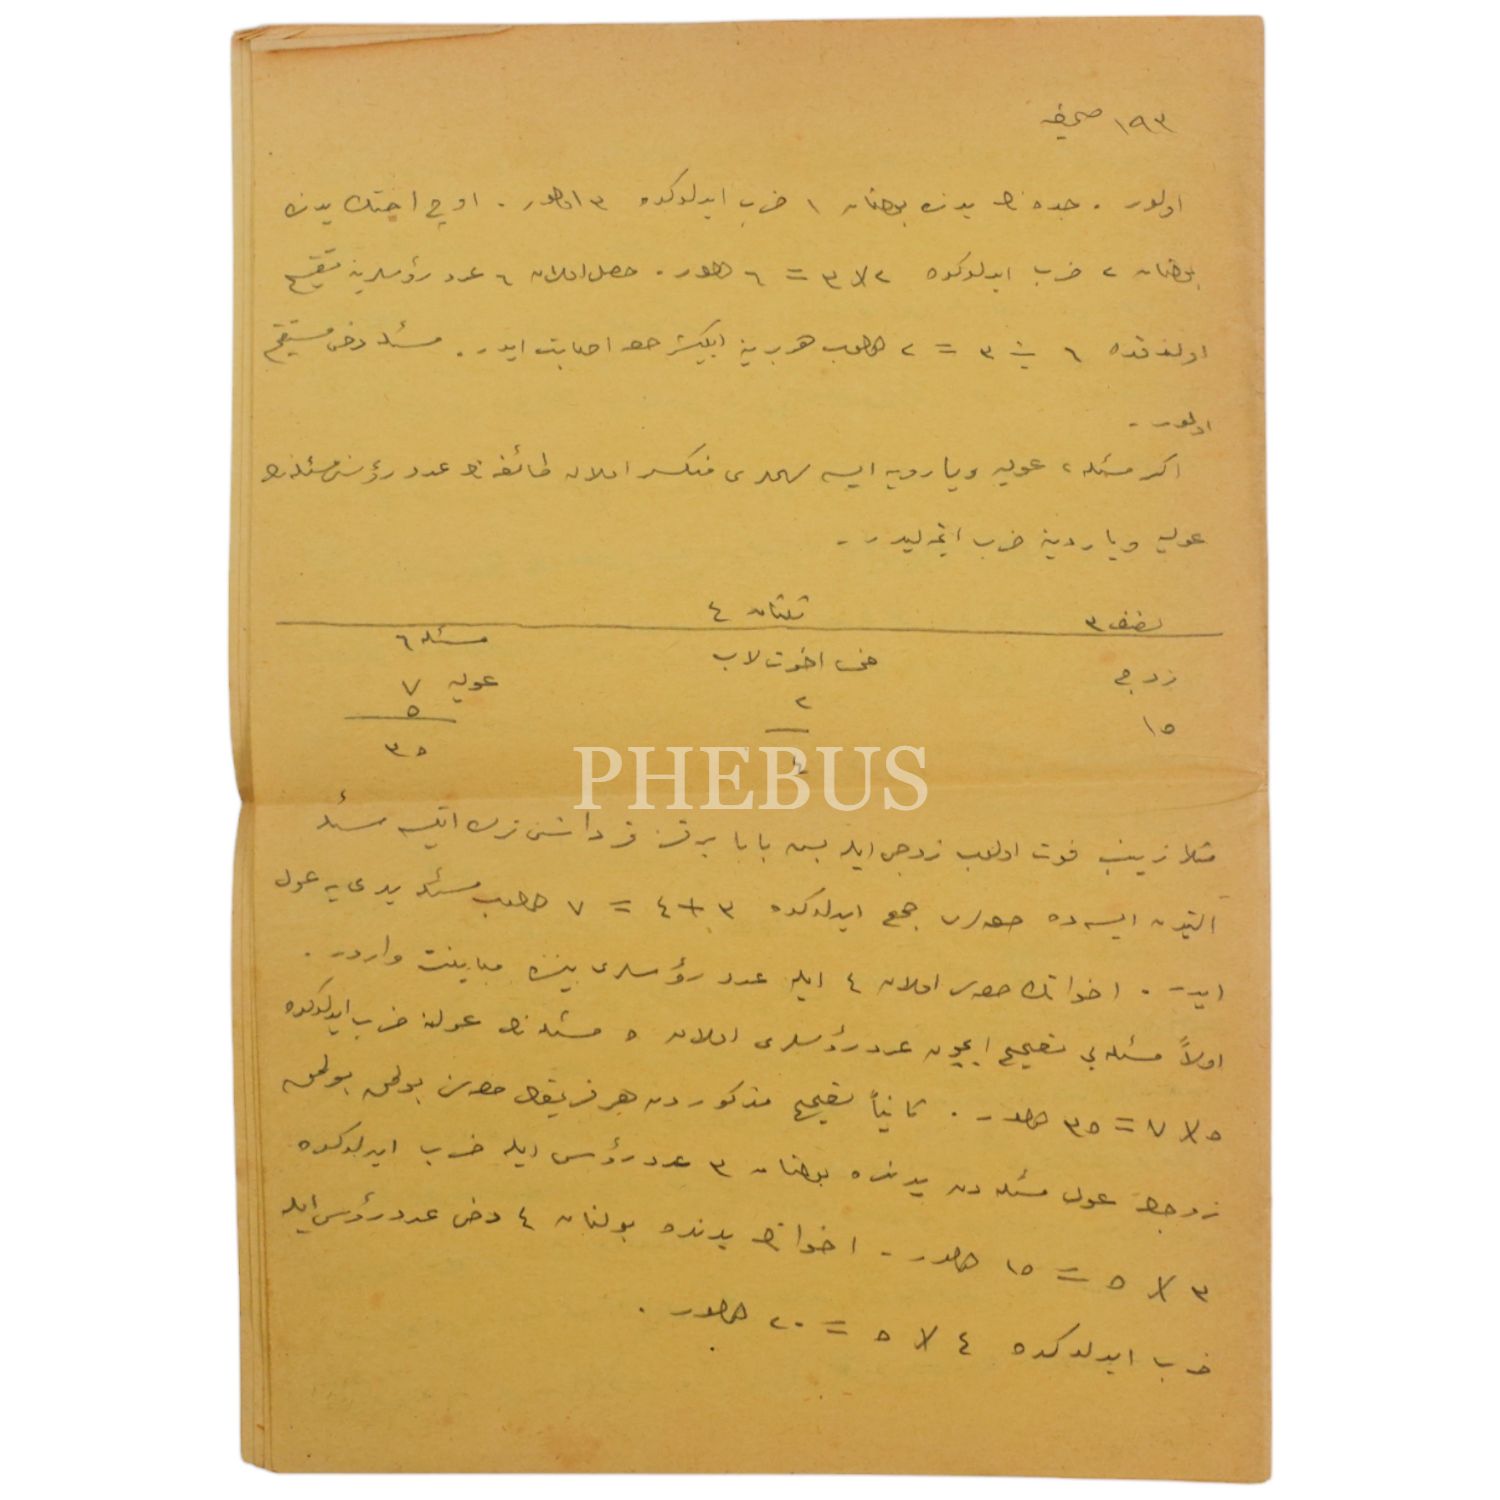 ١٩٣ صحيفه
اولور . جده نك يدنده بولنان ١ ضرب ايدلدكده ٣ اولور . اوچ اختك يدنده
بولنان ٢ ضرب ايدلدكده ٢ X ٣ = ٦ اولور . حاصل اولان ٦ عدد رؤسلرينه تقسيم
اولندقده ٦ ÷ ٣ = ٢ اولوب هر برينه ايكيشر حصه اصابت ايدر . مسئله دخى مستقيم
اولور .
اكر مسئله ، عوليه ويا رديه ايسه سهملرى منكسر اولان طائفه نك عدد رؤسنى مسئله نك
عولنه ويا ردينه ضرب ايتمليدر .
نصف ٣ ثلثان ٤
مسئله ٦
زوج خمس اخوت لاب
عوليه ٧
١٥ ٢ ٥
٤ ٣٥
PHEBUS
مثلا زينب فوت اولوب زوجى ايله بش بابا بر قيز قرداشنى ترك ايتسه مسئله
آلتيدن ايسه ده حصه لرى جمع ايدلدكده ٣ + ٤ = ٧ اولوب مسئله يدى يه عول
ايدر . اخواتك حصه سى اولان ٤ ايله عدد رؤسلرى بيننده مباينت واردر .
اولاً مسئله يى تصحيح ايچون عدد رؤسلرى اولان ٥ مسئله نك عولنه ضرب ايدلدكده
٥ X ٧ = ٣٥ اولور . ثانياً تصحيح مذكوردن هر فريقك حصه سنى بولمق
زوجك عول مسئله دن يدنده بولنان ٣ عدد رؤس ايله ضرب ايدلدكده
٣ X ٥ = ١٥ اولور . اخواتك يدنده بولنان ٤ دخى عدد رؤس ايله
ضرب ايدلدكده ٤ X ٥ = ٢٠ اولور .